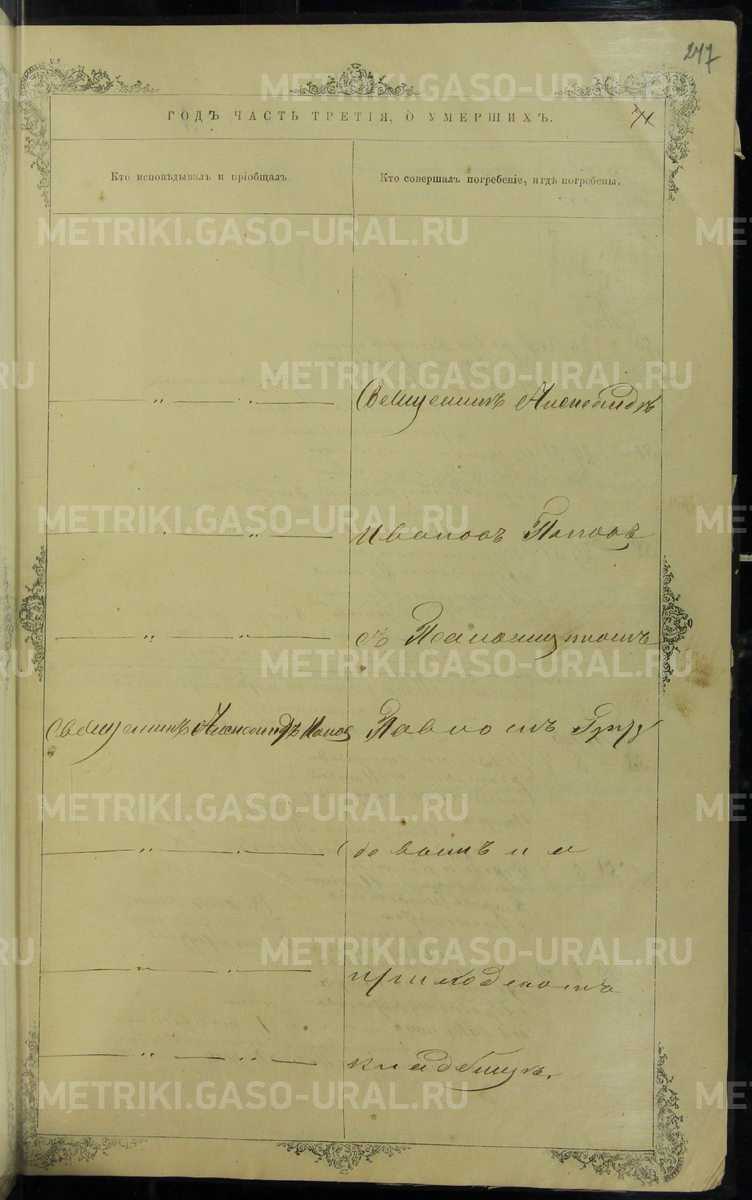 247
ГОДЪ ЧАСТЬ ТРЕТІЯ, О УМЕРШИХЪ.
71
Кто исповѣдывалъ и пріобщалъ.
Кто совершалъ погребеніе, и гдѣ погребены.
Священникъ Александръ
Ивановъ Поповъ
съ Псаломщикомъ
Священникъ Александръ Попов
Павломъ
на
приходскомъ
кладбищѣ.
METRIKI.GASO-URAL.RU